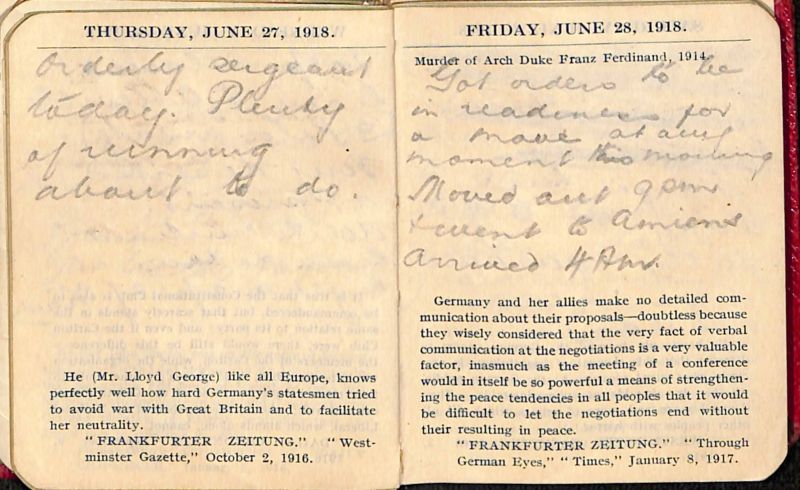 THURSDAY, JUNE 27, 1918.
Orderly sergeant
today. Plenty
of running
about to do.
He (Mr. Lloyd George) like all Europe, knows
perfectly well how hard Germany's statesmen tried
to avoid war with Great Britain and to facilitate
her neutrality.
"FRANKFURTER ZEITUNG." "West-
minster Gazette," October 2, 1916.
FRIDAY, JUNE 28, 1918.
Murder of Arch Duke Franz Ferdinand, 1914.
Got orders to be
in readiness for
a move at any
moment this morning
Moved out 9 pm
& went to Amiens
Arrived 4 Am.
Germany and her allies make no detailed com-
munication about their proposals—doubtless because
they wisely considered that the very fact of verbal
communication at the negotiations is a very valuable
factor, inasmuch as the meeting of a conference
would in itself be so powerful a means of strengthen-
ing the peace tendencies in all peoples that it would
be difficult to let the negotiations end without
their resulting in peace.
"FRANKFURTER ZEITUNG." "Through
German Eyes," "Times," January 8, 1917.